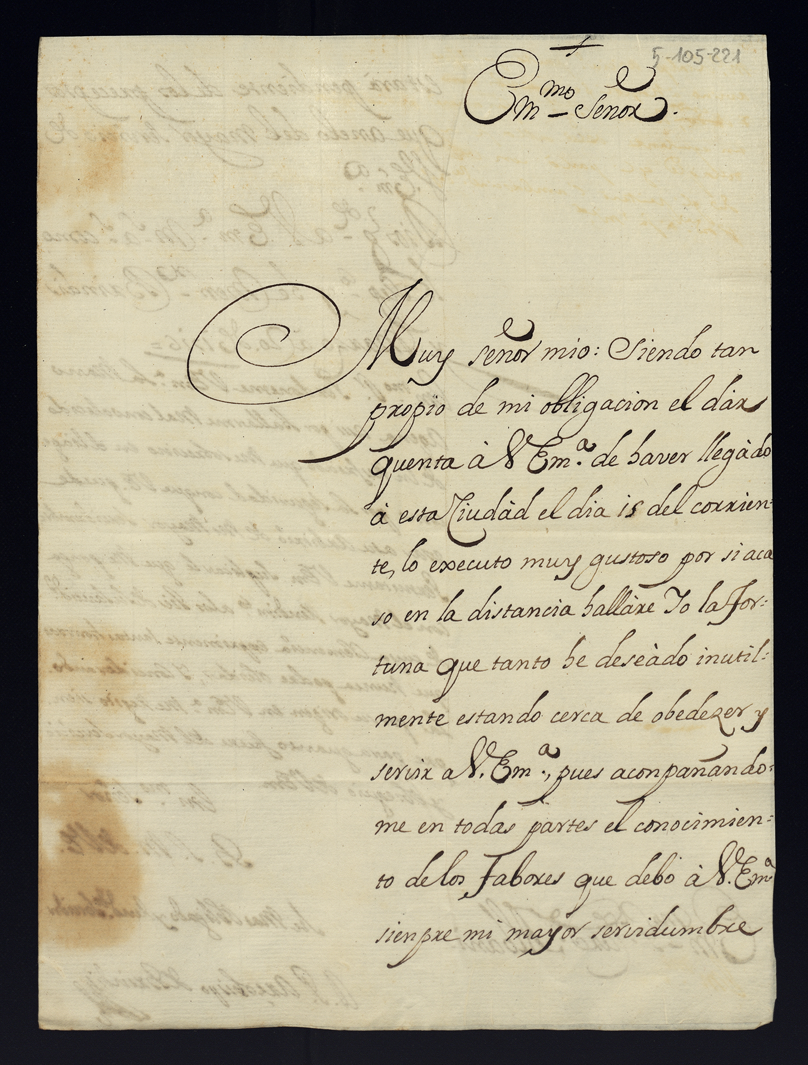 5-105-221
Emmo Señor.
Muy señor mio: Siendo tan
propio de mi obligacion el dàr
quenta à V Em.a de haver llegàdo
à esta Ciudàd el dia 15 del corrien-
te, lo executo muy gustoso por si aca
so en la distancia hallàre Yo la For-
tuna que tanto he deseàdo inutil-
mente estando cerca de obedezer y
servir a V. Em.a, pues aconpañando-
me en todas partes el conocimien-
to de los Fabores que debo à V. Em.a
sienpre mi mayor servidumbre